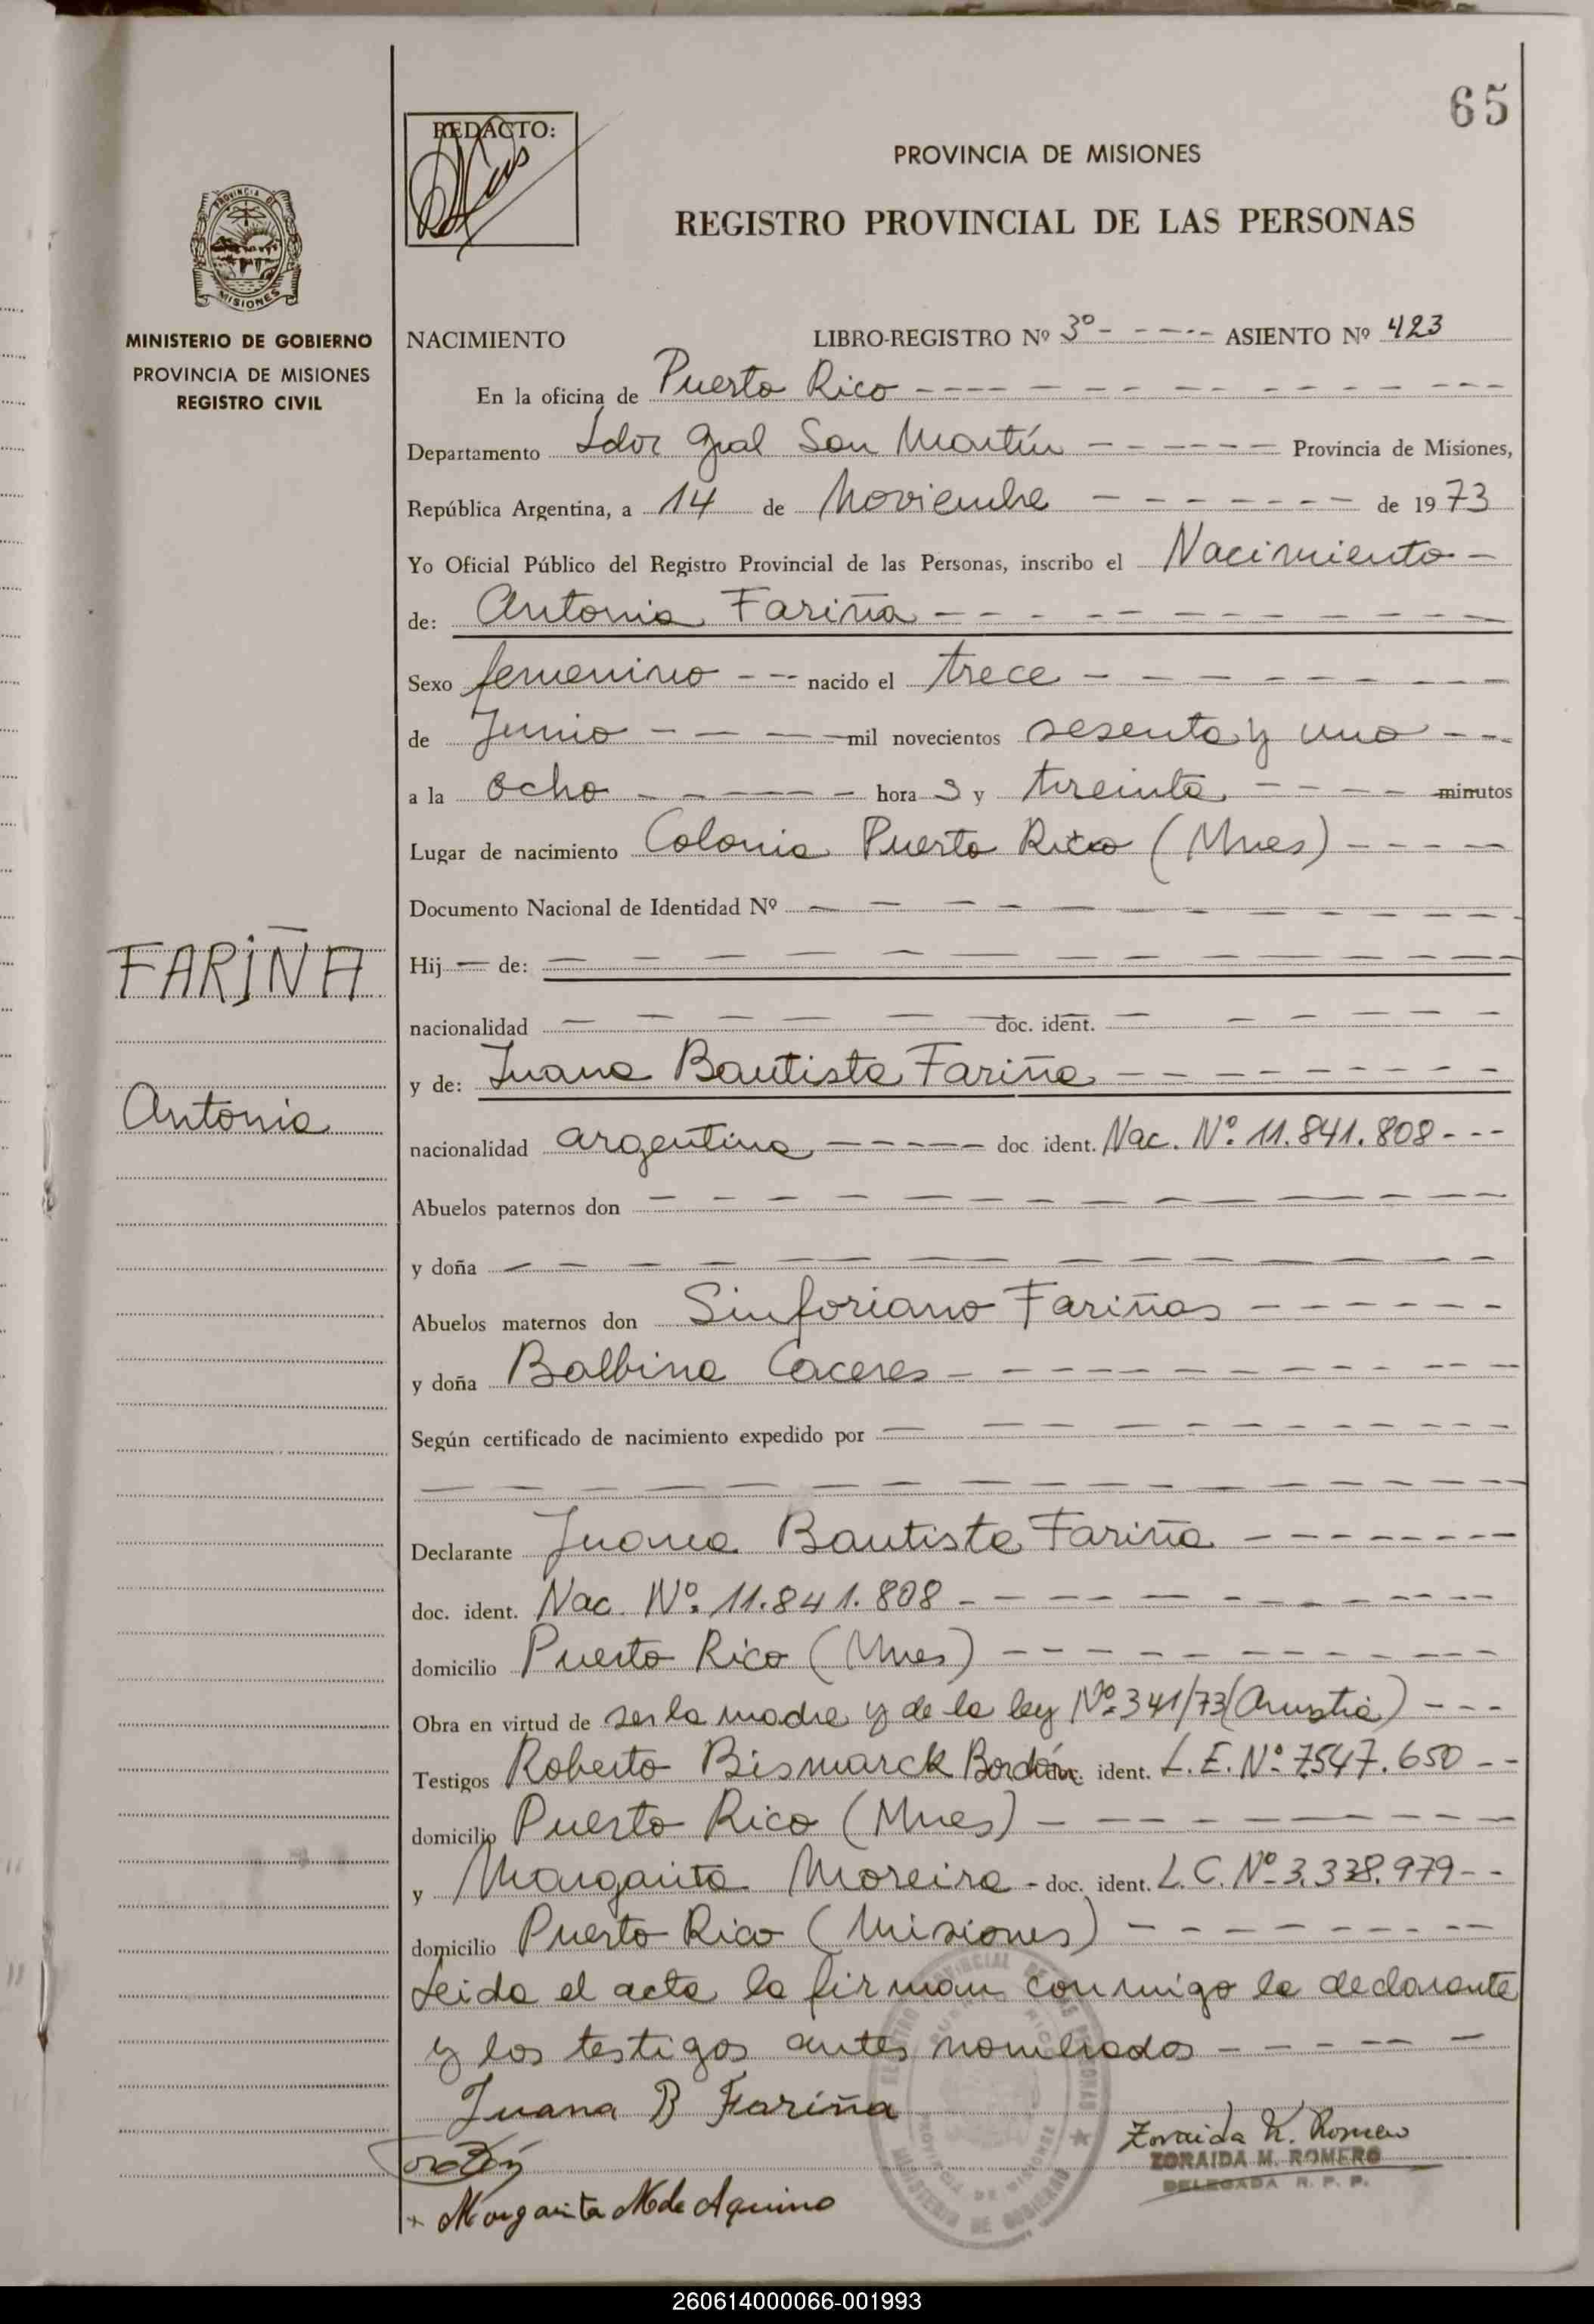 65
REDACTO:
PROVINCIA DE MISIONES
REGISTRO PROVINCIAL DE LAS PERSONAS
PROVINCIA DE
MISIONES
MINISTERIO DE GOBIERNO
PROVINCIA DE MISIONES
REGISTRO CIVIL
NACIMIENTO LIBRO-REGISTRO Nº 3º - - - - - ASIENTO Nº 423
En la oficina de Puerto Rico
Departamento Ldor Gral San Martín Provincia de Misiones,
República Argentina, a 14 de Noviembre de 1973
Yo Oficial Público del Registro Provincial de las Personas, inscribo el Nacimiento
de: Antonia Fariña
Sexo femenino nacido el trece
de Junio mil novecientos sesenta y uno
a la ocho hora s y treinta minutos
Lugar de nacimiento Colonia Puerto Rico (Mnes)
Documento Nacional de Identidad Nº
FARIÑA
Hij de:
nacionalidad doc. ident.
y de: Juana Bautista Fariña
Antonia
nacionalidad argentina doc. ident. Nac. Nº 11.841.808
Abuelos paternos don
y doña
Abuelos maternos don Sinforiano Fariñas
y doña Balbina Caceres
Según certificado de nacimiento expedido por
Declarante Juana Bautista Fariña
doc. ident. Nac. Nº 11.841.808
domicilio Puerto Rico (Mnes)
Obra en virtud de ser la madre y de la ley Nº 341/73 (Amnstia)
Testigos Roberto Bismarck Bordón doc. ident. L.E. Nº 7.547.650
domicilio Puerto Rico (Mnes)
y Margarita Moreira doc. ident. L.C. Nº 3.338.979
domicilio Puerto Rico (Misiones)
Leida el acta la firman conmigo la declarante
y los testigos antes nombrados
Juana B Fariña
Zoraida M. Romero
ZORAIDA M. ROMERO
DELEGADA R. P. P.
Margarita M de Aquino
MINISTERIO DE GOBIERNO
PROVINCIA DE MISIONES
260614000066-001993